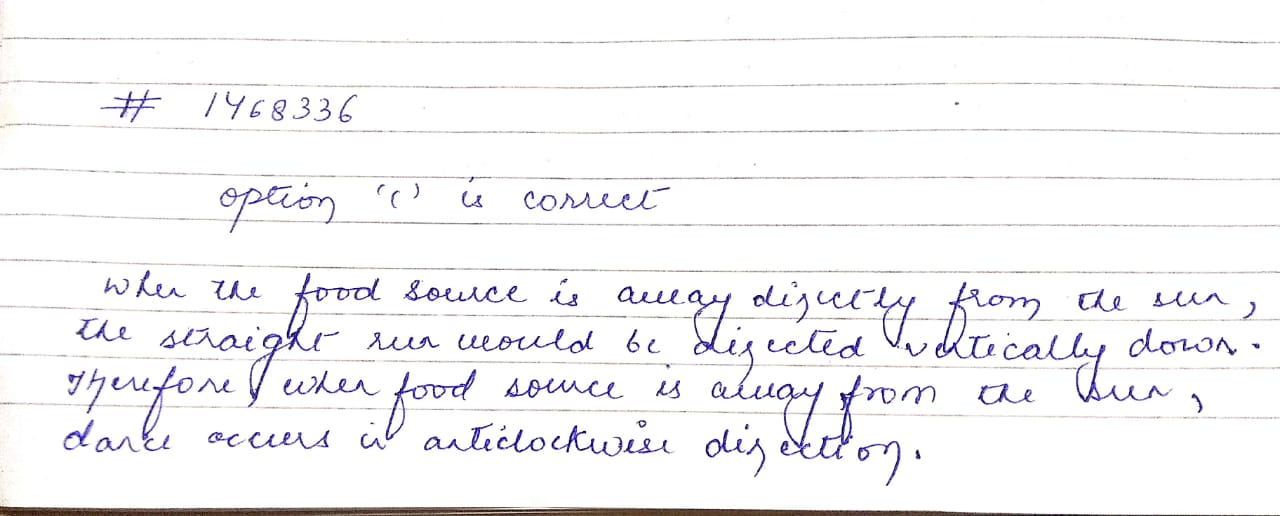 # 1468336
option '(' is correct
when the food source is away directly from the sun,
the straight run would be directed vertically down.
Therefore, when food source is away from the sun,
dance occurs in anticlockwise direction.